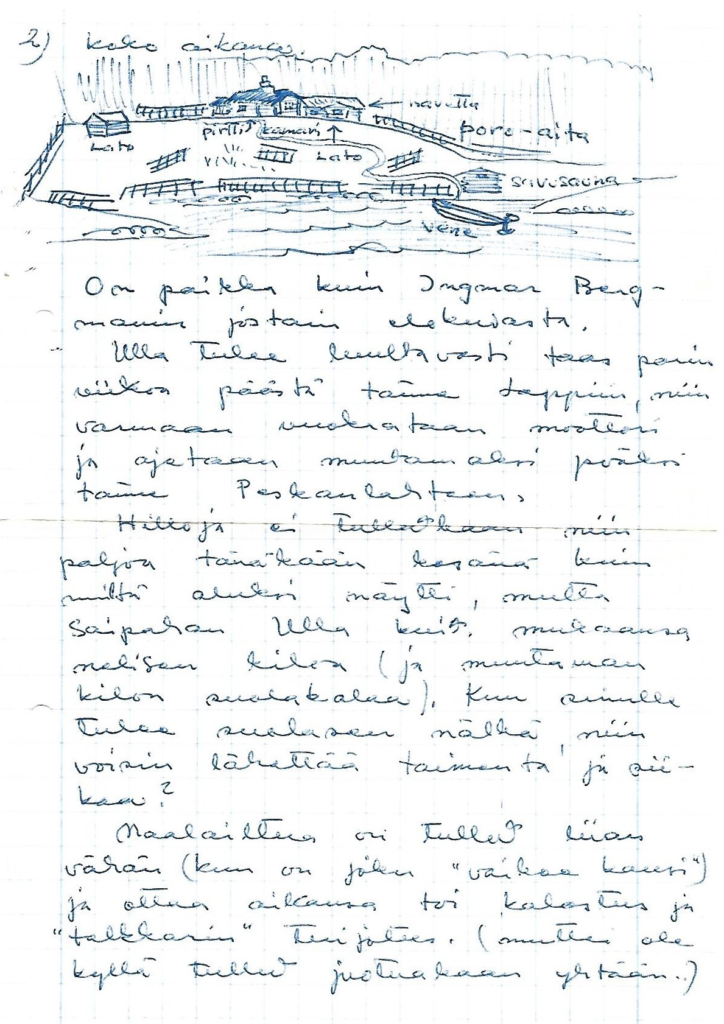 2) koko aikana.
navetta
poro-aita
Lato
pirtti kamari
Lato
savusauna
vene
On paikka kuin Ingmar Berg-
manin jostain elokuvasta.
Ulla tulee luultavasti taas parin
viikon päästä tänne Lappiin, niin
varmaan vuokrataan moottori
ja ajetaan muutamaksi pväksi
tänne Peskanlahteen.
Hilloja ei tullutkaan niin
paljon tänäkään kesänä kuin
miltä aluksi näytti, mutta
saipahan Ulla kuit. mukaansa
nelisen kiloa (ja muutaman
kilon suolakalaa). Kun sinulle
tulee suolasen nälkä, niin
voisin lähettää taimenta ja sii-
kaa?
Maalailtua on tullut liian
vähän (kun on joku "vaikea kausi")
ja ottaa aikansa toi kalastus ja
"talkkarin" tuijotus. (muttei ole
kyllä tullut juotuakaan yhtään..)